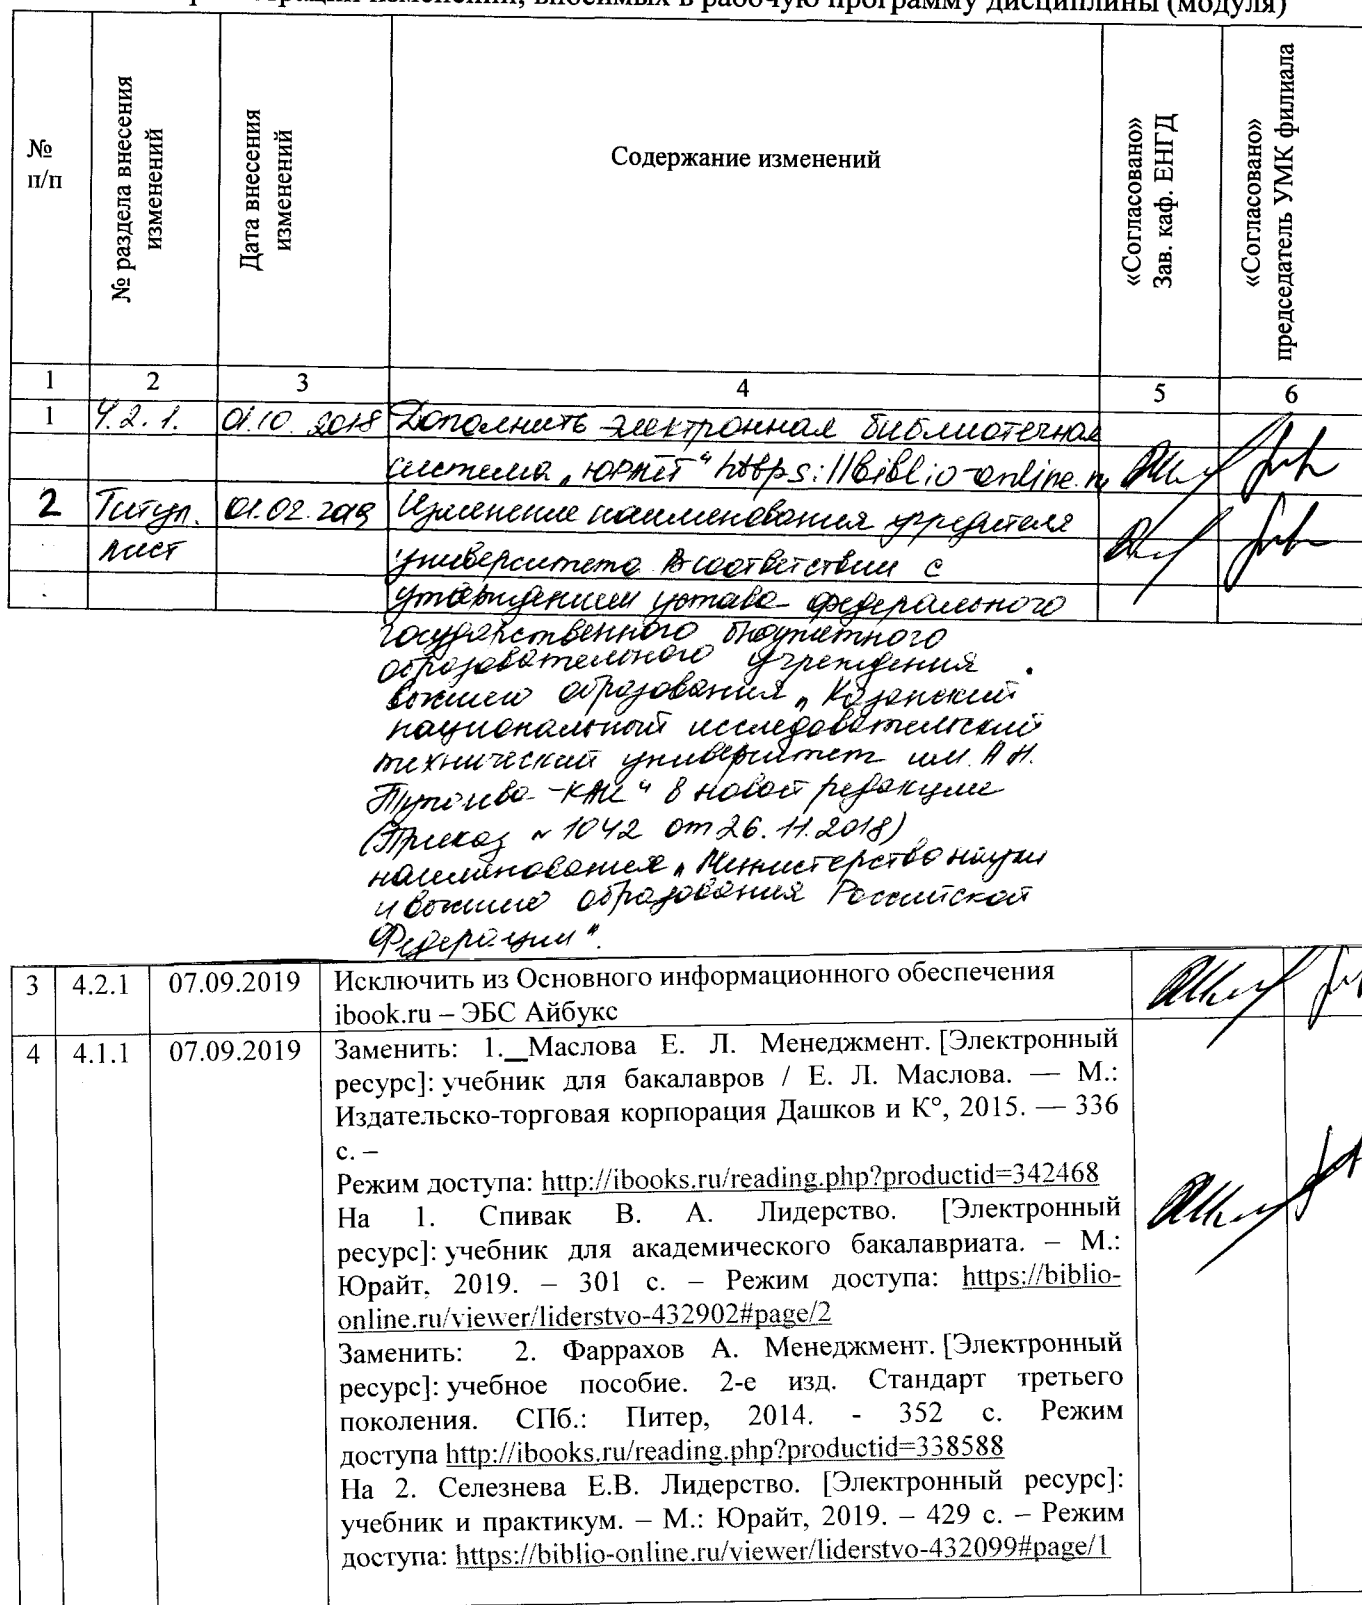 регистрации изменений, вносимых в рабочую программу дисциплины (модуля)
№ п/п
№ раздела внесения изменений
Дата внесения изменений
Содержание изменений
«Согласовано» Зав. каф. ЕНГД
«Согласовано» председатель УМК филиала
1 2 3 4 5 6
1 4.2.1. 01.10.2018 Дополнить электронная библиотечная
система „юрайт“ https://biblio-online.ru
2 Титул. 01.02.2019 Изменение наименования учредителя
лист университета в соответствии с
утверждением устава федерального
государственного бюджетного
образовательного учреждения
высшего образования „Казанский
национальный исследовательский
технический университет им. А.Н.
Туполева-КАИ“ в новой редакции
(Приказ №1042 от 26.11.2018)
наименования „Министерство науки
и высшего образования Российской
Федерации“.
3 4.2.1 07.09.2019 Исключить из Основного информационного обеспечения
ibook.ru – ЭБС Айбукс
4 4.1.1 07.09.2019 Заменить: 1. Маслова Е. Л. Менеджмент. [Электронный
ресурс]: учебник для бакалавров / Е. Л. Маслова. — М.:
Издательско-торговая корпорация Дашков и К°, 2015. — 336
с. –
Режим доступа: http://ibooks.ru/reading.php?productid=342468
На 1. Спивак В. А. Лидерство. [Электронный
ресурс]: учебник для академического бакалавриата. – М.:
Юрайт, 2019. – 301 с. – Режим доступа: https://biblio-
online.ru/viewer/liderstvo-432902#page/2
Заменить: 2. Фаррахов А. Менеджмент. [Электронный
ресурс]: учебное пособие. 2-е изд. Стандарт третьего
поколения. СПб.: Питер, 2014. - 352 с. Режим
доступа http://ibooks.ru/reading.php?productid=338588
На 2. Селезнева Е.В. Лидерство. [Электронный ресурс]:
учебник и практикум. – М.: Юрайт, 2019. – 429 с. – Режим
доступа: https://biblio-online.ru/viewer/liderstvo-432099#page/1